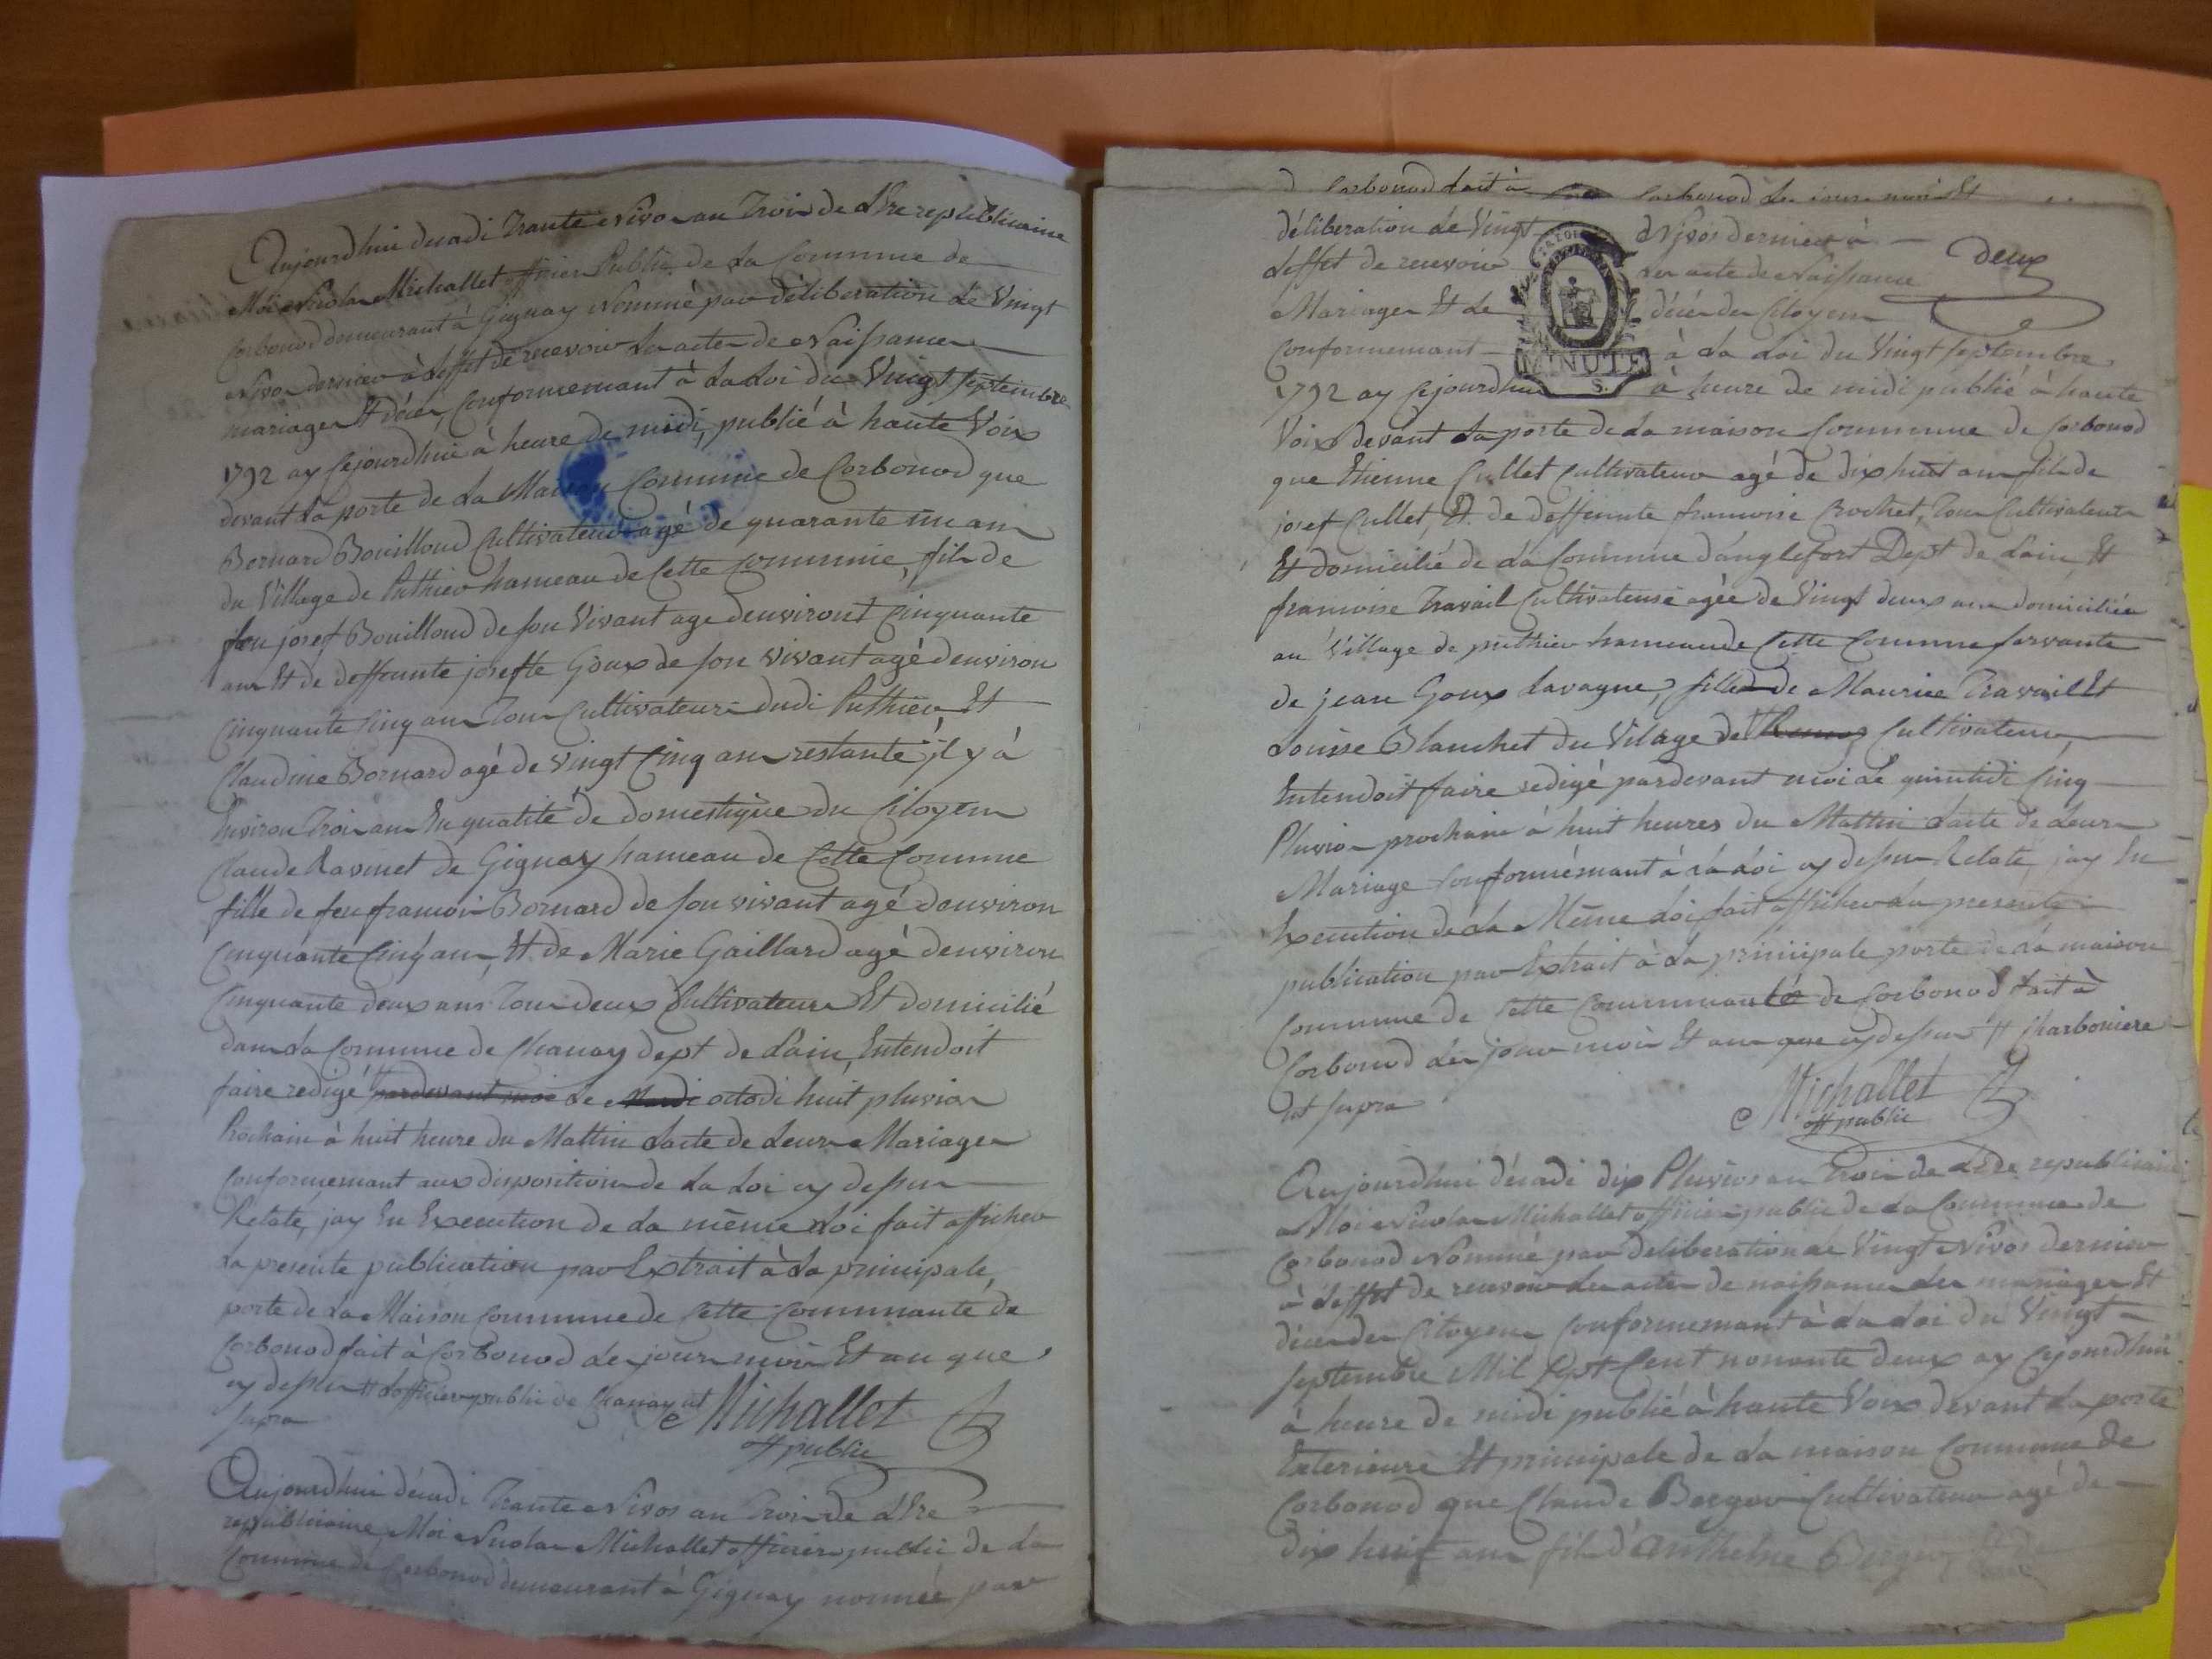 Aujourdhui decadi Trante Nivos an Trois de Lère republicaine
Moi Nicolas Michallet officier Public de La Commune de
Corbonod demeurant à Gignay Nommé par deliberation de Vingt
Nivos dernier à Leffet de recevoir Les actes de Naissances
mariages Et décés, Conformemant à La Loi du Vingt Septembre
1792 ay Cejourdhui à heure de midi, publié à haute Voix
devant La porte de La Maison Commune de Corbonod que
Bernard Bouilloud Cultivateur agé de quarante un ans
du Village de Puthier hameau de Cette Commune, fils de
feu josef Bouilloud de son Vivant age denviront Cinquante
ans Et de deffeunte josefte Goux de son vivant agé denviron
Cinquante Cinq ans Tous Cultivateurs dudi Puthier, Et
Claudine Bornard agé de Vingt Cinq ans restante, il y à
Environ Trois ans En qualité de domestique du Citoyem
Claude Ravinet de Gignay hameau de Cette Commune
fille de feu francois Bornard de son vivant agé denviron
Cinquante Cinq ans, Et de Marie Gaillard agé denviron
Cinquante deux ans Tous deux Cultivateurs Et domicilié
dans La Commune de Chanay dept de Lain, Entendoit
faire redigé pardevant moi Le Mardi octodi huit pluvios
Prochain à huit heure du Mattin Lacte de Leurs Mariages
Conformemant aux disposition de La Loi cy dessus
Relate, jay En Execution de La mème Loi fait afficher
La presente publication par Extrait à La principale,
porte de La Maison Commune de Cette Communauté de
Corbonod fait à Corbonod Les jours mois Et an que
cy dessus # Lofficier public de Chanay ut
supra
Michallet
off public
Aujourdhui décadi Trante Nivos an Trois de Lère
republicaine, Moi Nicolas Michallet officier public de La
Commune de Corbonod demeurant à Gignay nommée par
Corbonod fait à Corbonod Les jours mois Et
déliberation de Vingt Nivos dernier à
Leffet de recevoir Les acte de Naissance
Mariages Et de décés des Citoyens
Conformemant à La Loi du Vingt Septembre
deux
MINUTE
S.
1792 ay Cejourdhui à heure de midi publié à haute
Voix devant La porte de La maison Commune de Corbonod
que Etienne Cullet Cultivateur agé de dix huit ans fils de
josef Cullet, Et de deffeunte francoise Crochet, Tous Cultivateurs
Et domicilié de La Commune danglefort Dept de Lain Et
francoise Travail Cultivateuse agée de Vingt deux ans domiciliée
au Village de puthier hameau de Cette Commune servante
de jean Goux Lavagne, fille de Maurice Travail Et
Louisse Blanchet du Vilage de Cultivateurs,
Entendoit faire redigé pardevant moi Le quintidi Cinq
Pluvios prochain à huit heures du Mattin Lacte de Leurs
Mariage Conformémant à La Loi cy dessus Relaté, jay En
Execution de La Mème Loi fait afficher La presente
publication par Extrait à La principale porte de La maison
Commune de Cette Communauté de Corbonod fait à
Corbonod Les jour mois Et an que cy dessus # Charboniere
ut supra
Michallet
off public
Aujourdhui décadi dix Pluvios an Trois de Lère republicaine
Moi Nicolas Michallet officier public de La Commune de
Corbonod Nommé par deliberation de Vingt Nivos dernier
à Leffet de recevoir Les actes de naissances des mariages Et
décés des Citoyens Conformemant à La Loi du Vingt
Septembre Mil Sept Cent nonante deux ay Cejourdhui
à heure de midi publié à haute Voix devant La porte
Exterieure Et principale de La maison Commune de
Corbonod que Claude Bergor Cultivateur agé de
dix huit ans fils d'anthelme